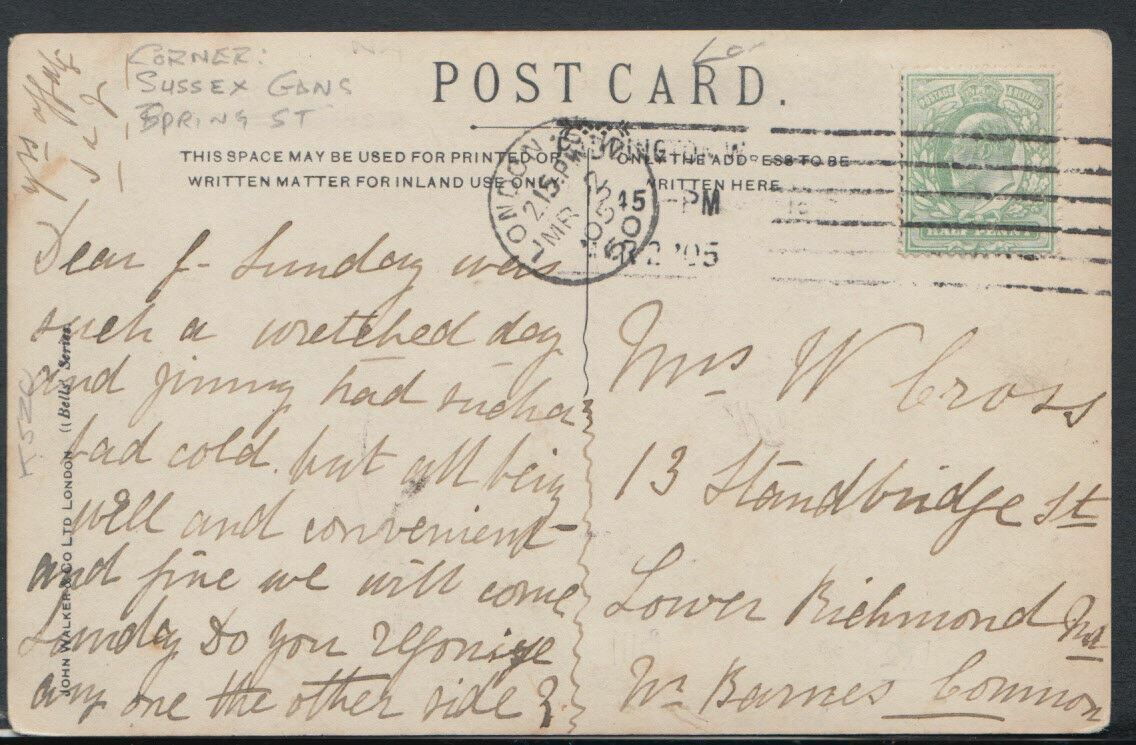 CORNER:
SUSSEX GDNS
SPRING ST
POST CARD.
THIS SPACE MAY BE USED FOR PRINTED OR
WRITTEN MATTER FOR INLAND USE ONLY
ONLY THE ADDRESS TO BE
WRITTEN HERE
POSTAGE & REVENUE
HALFPENNY
PADDINGTON W
LONDON
2.15 PM
MR
05
2.45 PM
MR 2 '05
Dear J- Sunday was
such a wretched day
and jinny had such a
bad cold. but all being
well and convenient
and fine we will come
Sunday Do you regonise
any one the other side?
yrs affly
Mrs W Cross
13 Standbridge St
Lower Richmond Rd
Nr Barnes Common
JOHN WALKER & CO LTD LONDON ("Bells" Series)